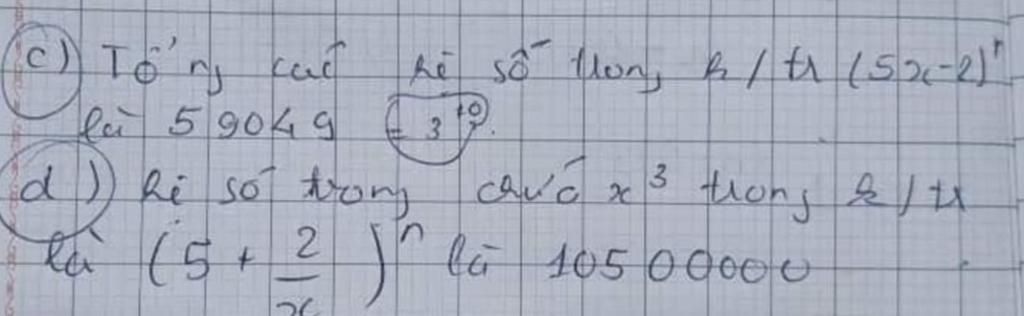 c) Tổng các hệ số trong k/tr (5x-2)ⁿ
là 59049 = 3¹⁰.
d) hệ số trong chứa x³ trong k/tr
là (5 + 2/x)ⁿ là 10500000